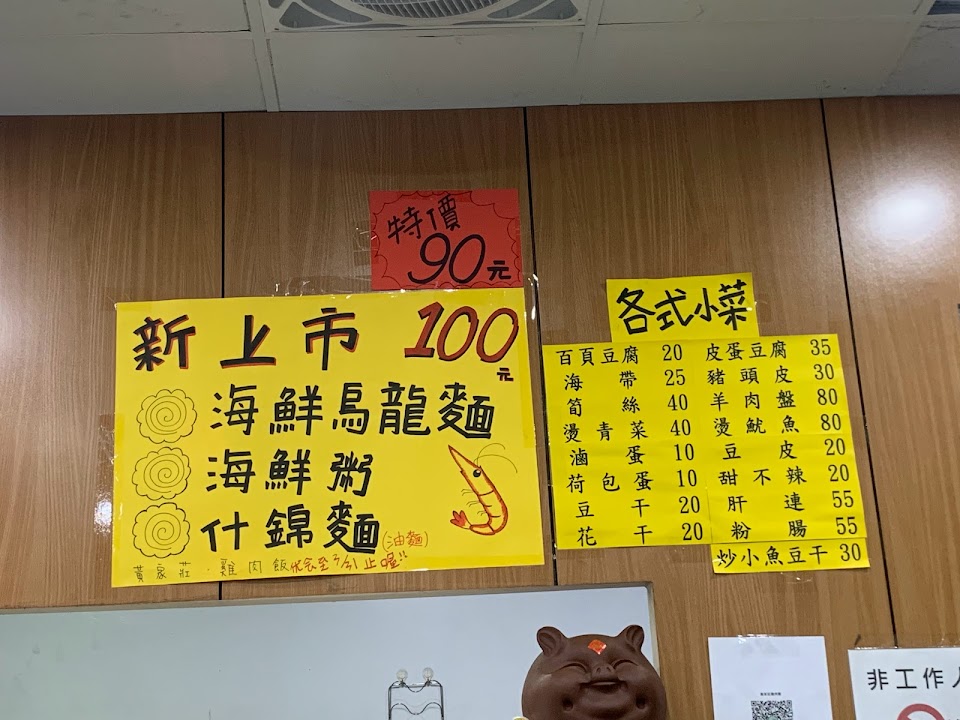 特價
90元
新上市 100元
海鮮烏龍麵
海鮮粥
什錦麵(油麵)
黃家莊·雞肉飯
止喔!!
各式小菜
百頁豆腐 20 皮蛋豆腐 35
海帶 25 豬頭皮 30
筍絲 40 羊肉盤 80
燙青菜 40 燙魷魚 80
滷蛋 10 豆皮 20
荷包蛋 10 甜不辣 20
豆干 20 肝連 55
花干 20 粉腸 55
炒小魚豆干 30
非工作人